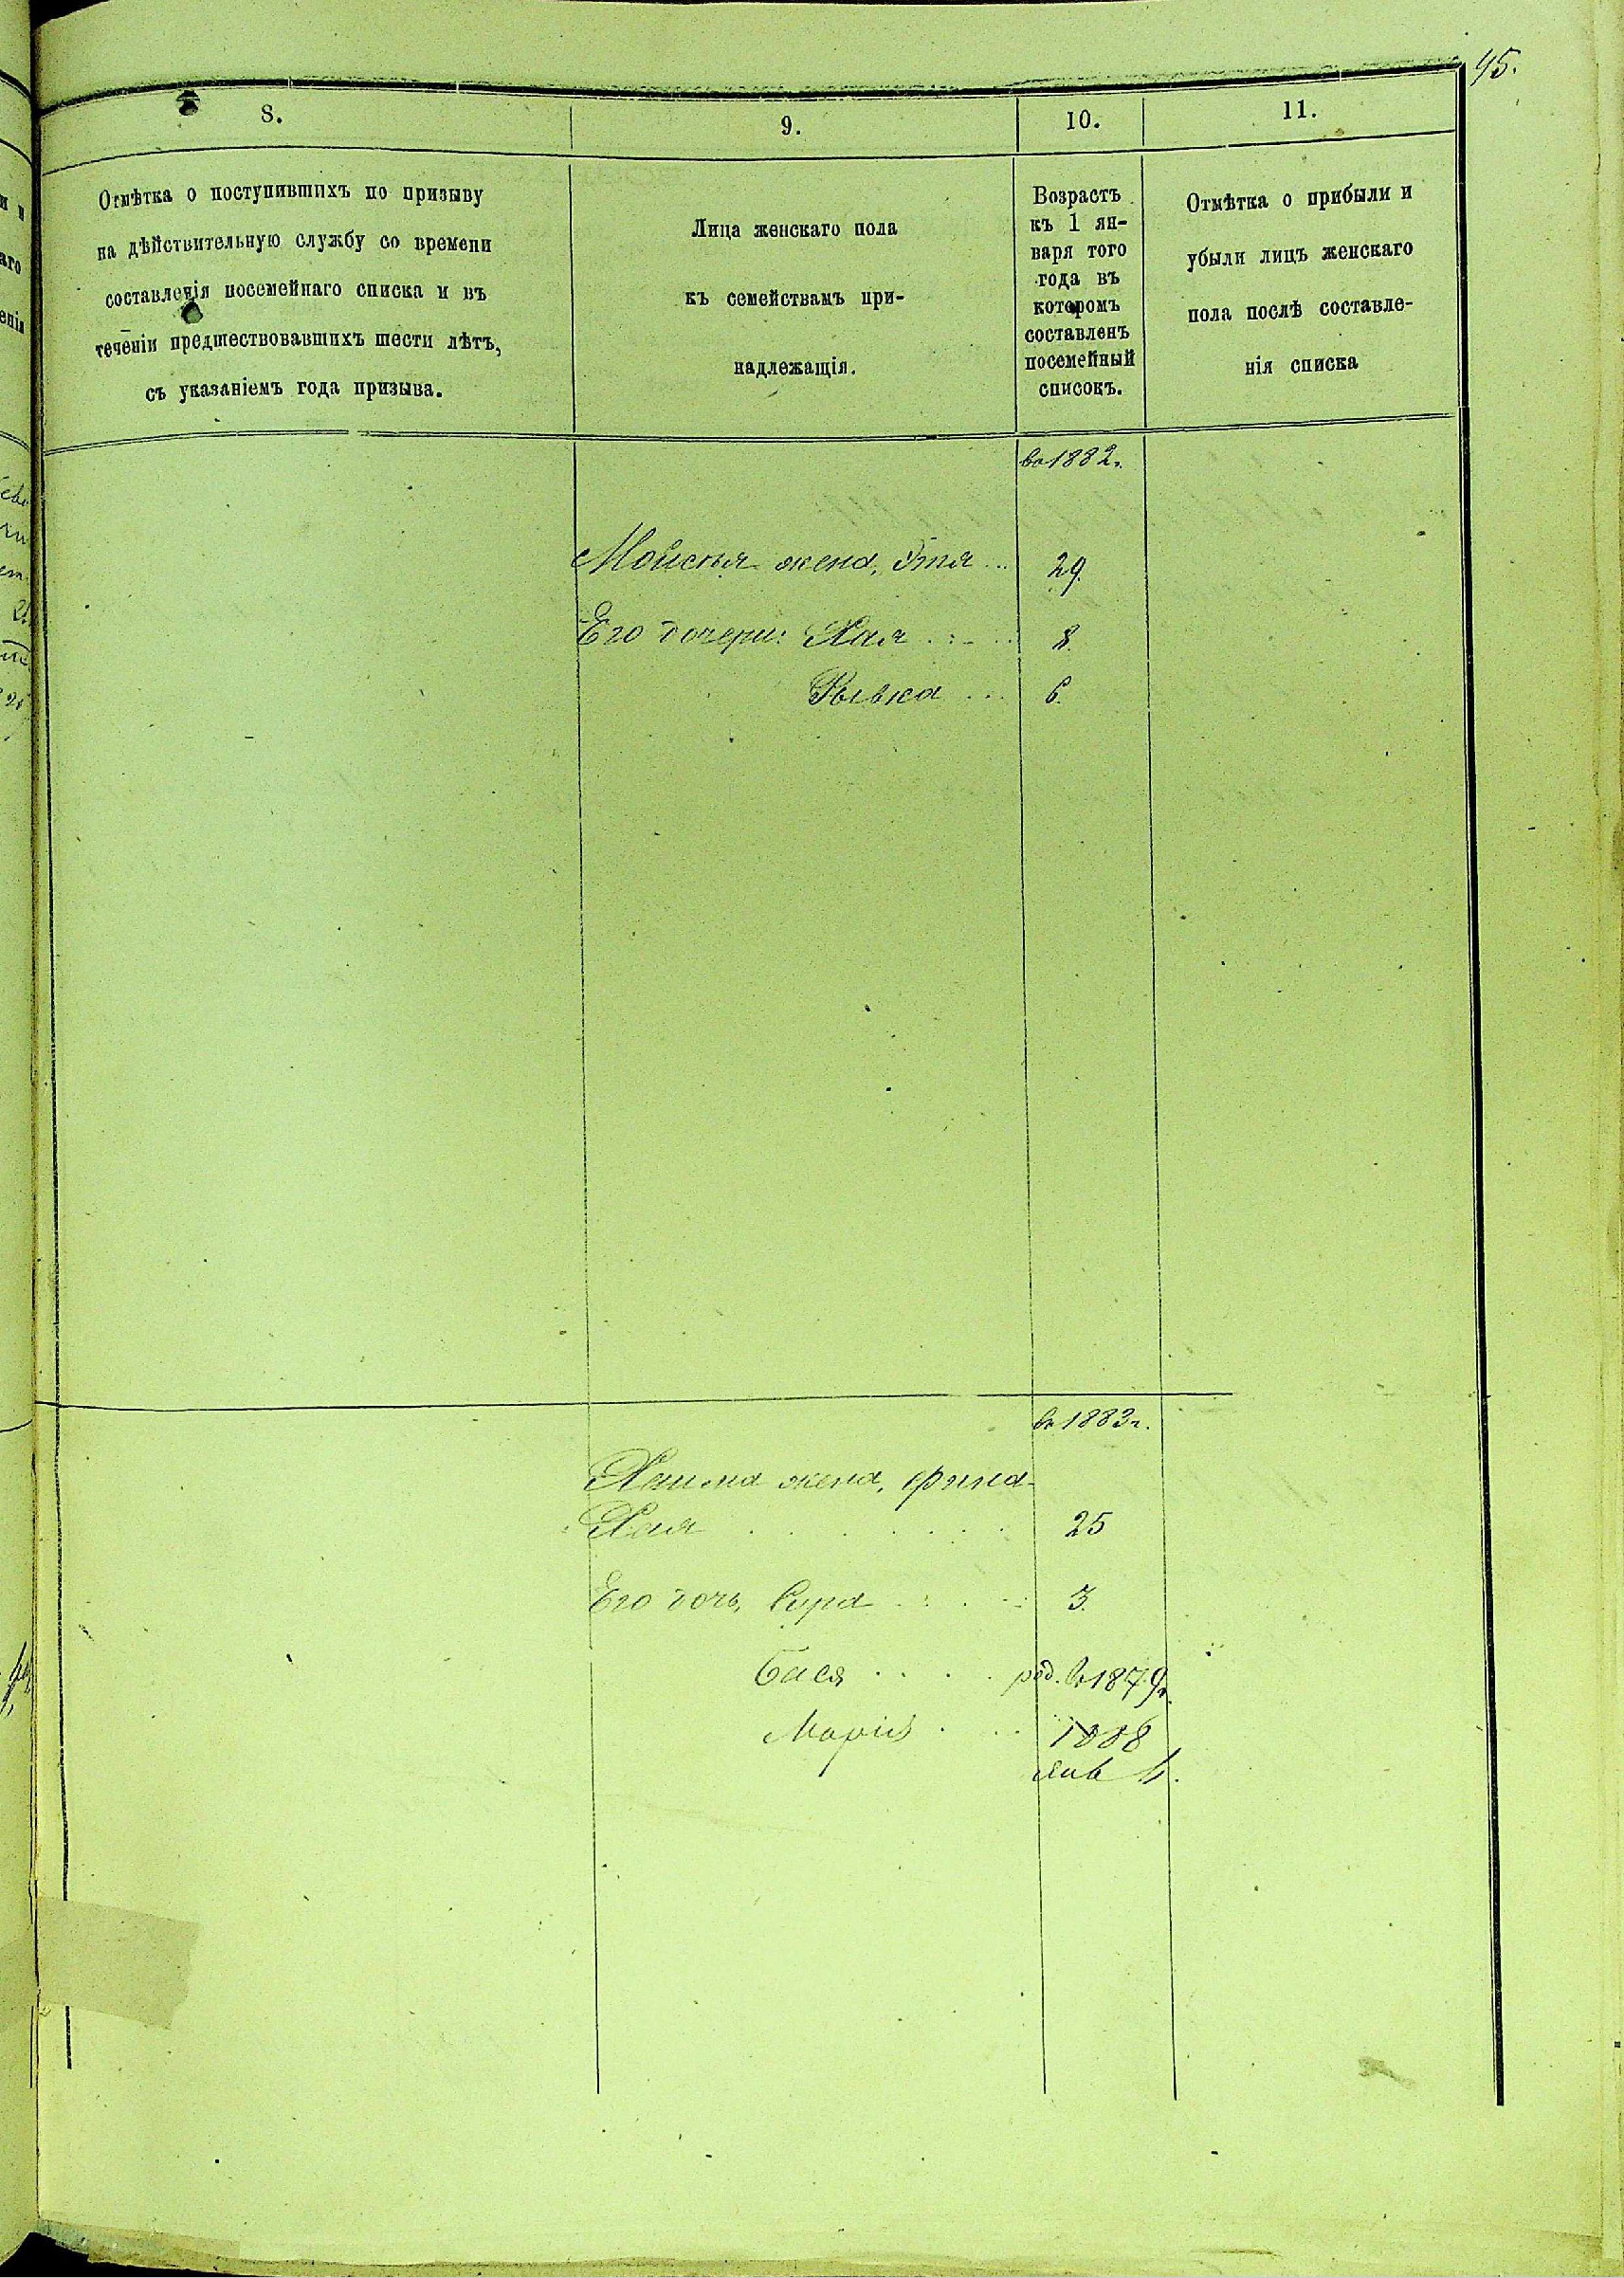 45.
8.
9.
10.
11.
Отмѣтка о поступившихъ по призыву
на дѣйствительную службу со времени
составленія посемейнаго списка и въ
теченіи предшествовавшихъ шести лѣтъ,
съ указаніемъ года призыва.
Лица женскаго пола
къ семействамъ при-
надлежащія.
Возрастъ
къ 1 ян-
варя того
года въ
которомъ
составленъ
посемейный
списокъ.
Отмѣтка о прибыли и
убыли лицъ женскаго
пола послѣ составле-
нія списка
во 1882 г.
Мойсея жена, Этя ... 29.
Его дочери: Хая ... 8.
Рывка ... 6.
въ 1883 г.
Хаима жена, Фрима-
Хая ... 25
Его дочь, Сура ... 3.
Бася .... род. въ 1879 г.
Марія ... 1888
янв 4.